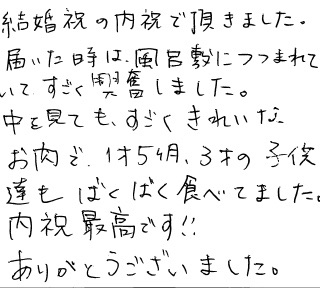 結婚祝の内祝で頂きました。
届いた時は、風呂敷につつまれて
いて、すごく興奮しました。
中を見ても、すごくきれいな
お肉で、1才5ヶ月、3才の子供
達もぱくぱく食べてました。
内祝最高です!!
ありがとうございました。